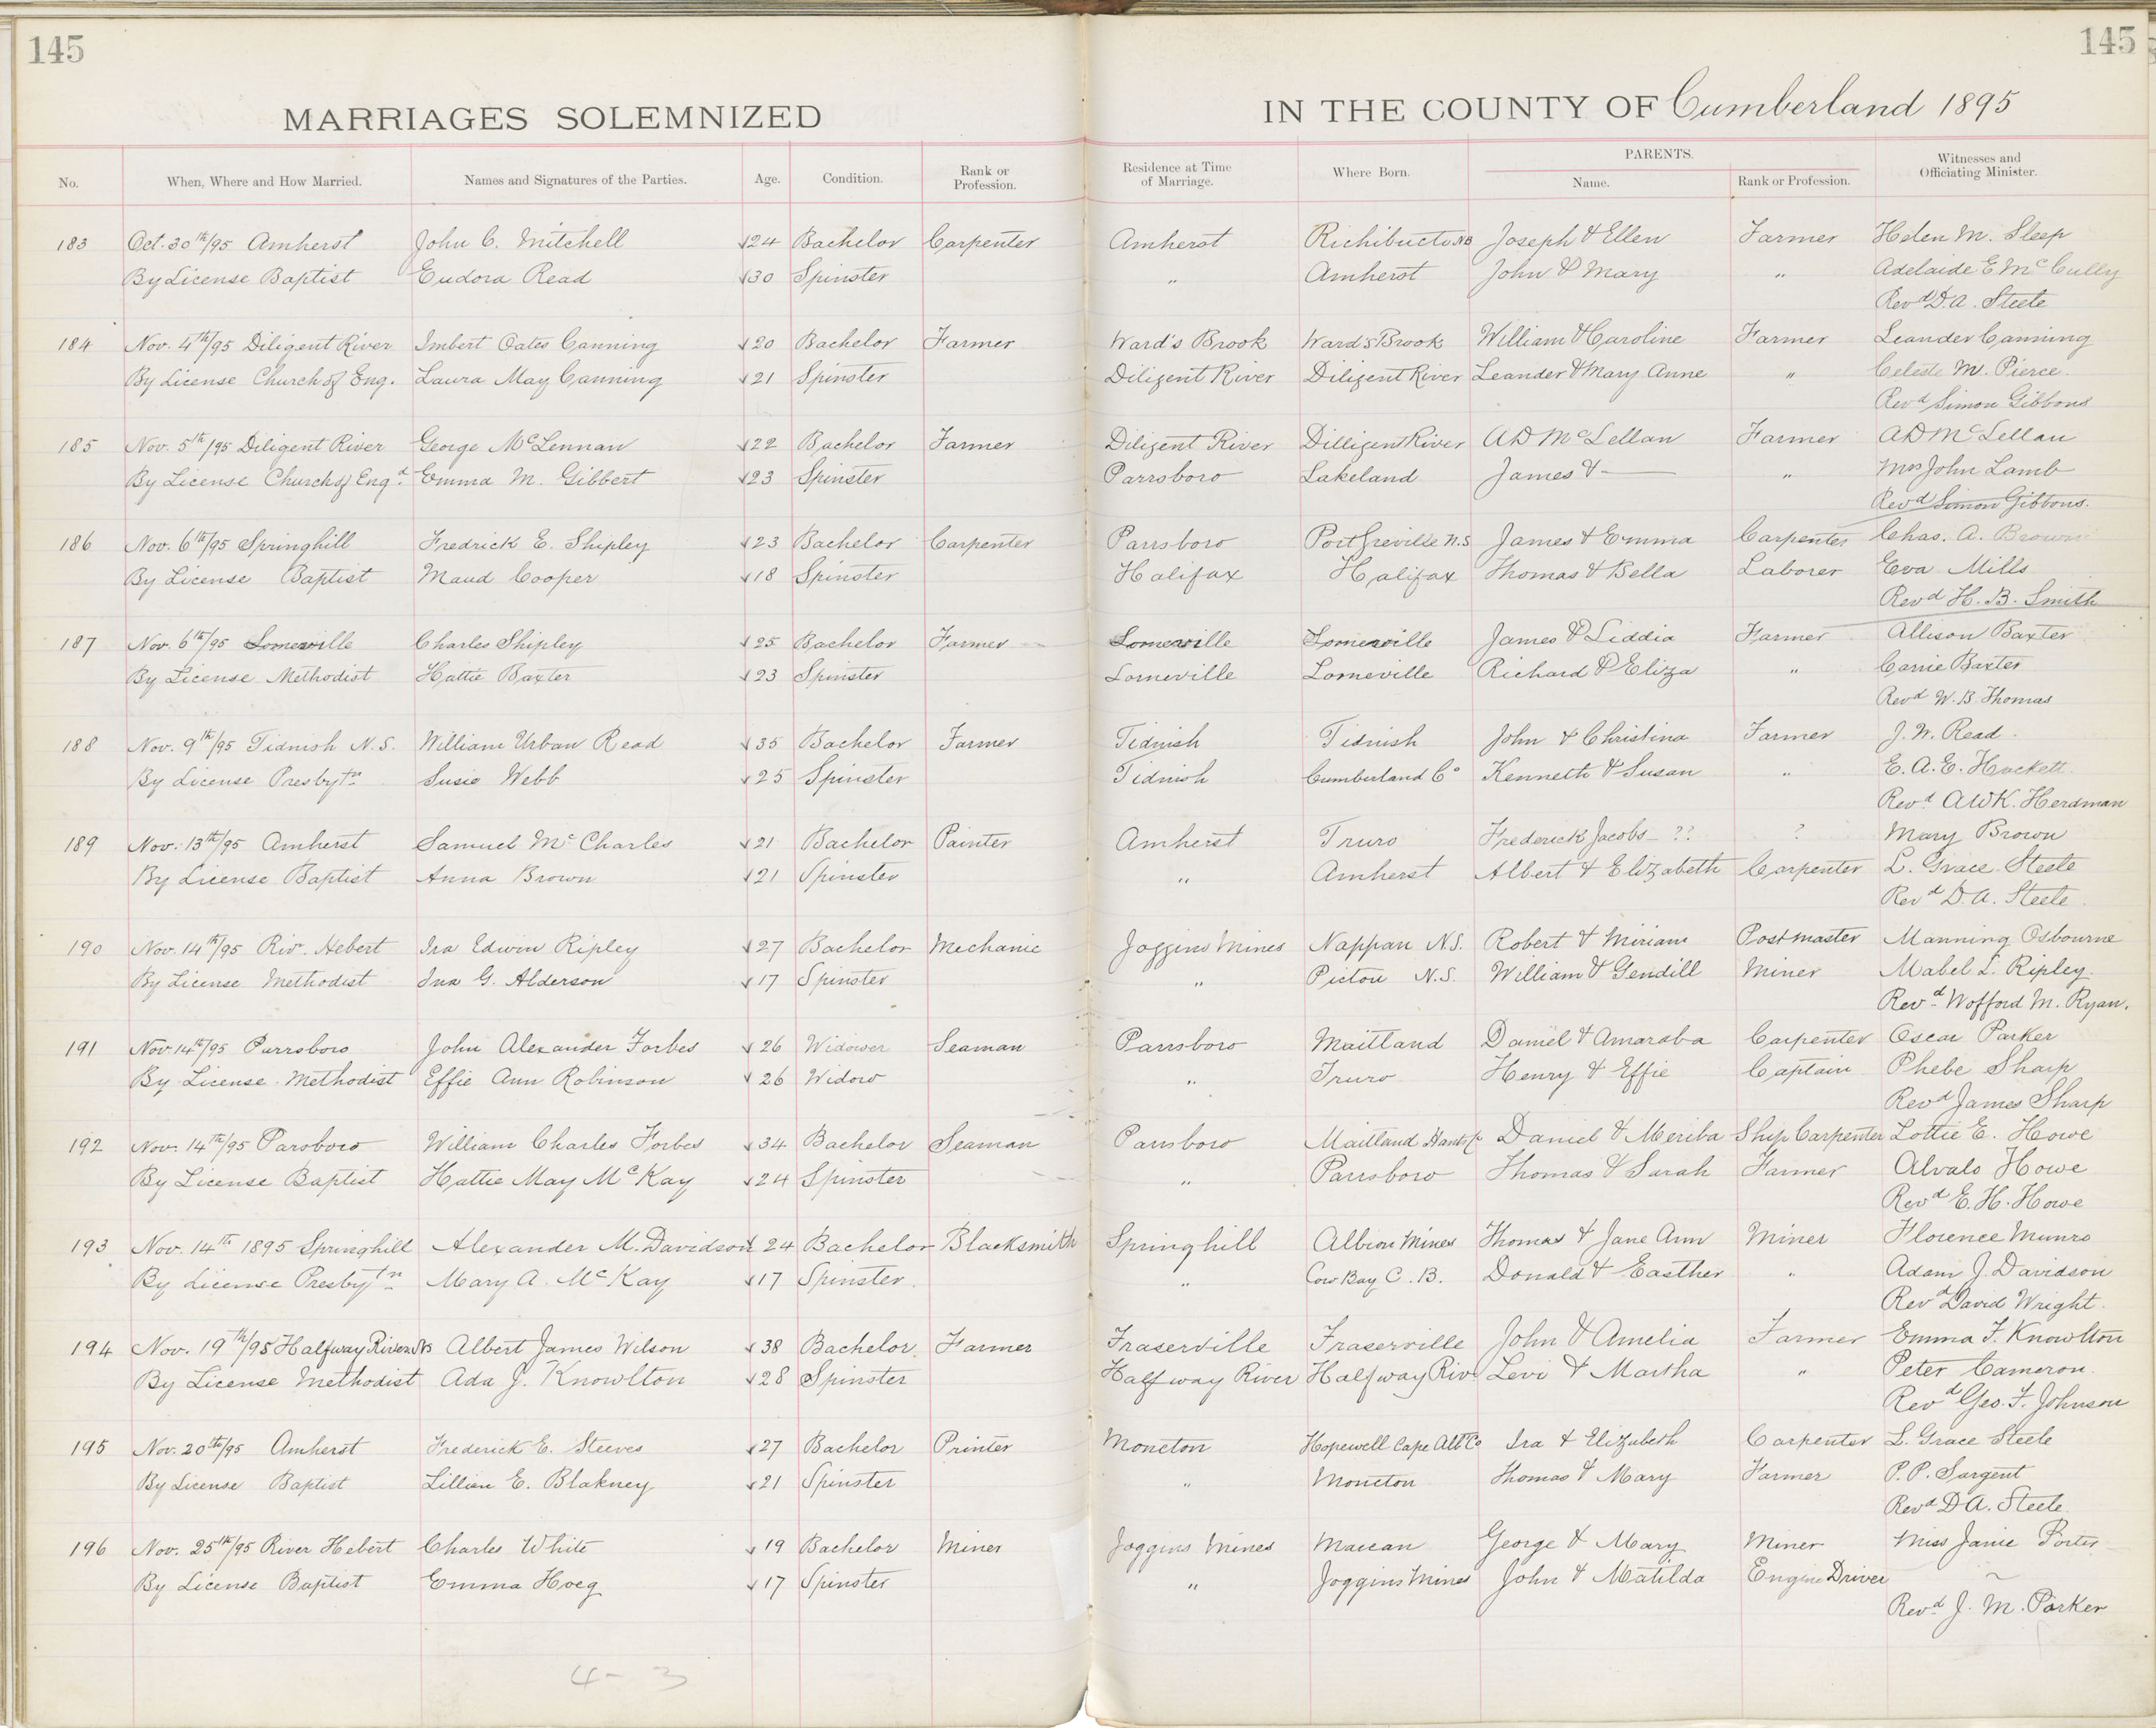 145
145
MARRIAGES SOLEMNIZED IN THE COUNTY OF Cumberland 1895
No. When, Where and How Married. Names and Signatures of the Parties. Age. Condition. Rank or Profession. Residence at Time of Marriage. Where Born. PARENTS. Name. Rank or Profession. Witnesses and Officiating Minister.
183 Oct. 30th/95 Amherst John C. Mitchell 24 Bachelor Carpenter Amherst Richibucto NB Joseph & Ellen Farmer Helen M. Sleep
By License Baptist Eudora Read 30 Spinster " Amherst John & Mary " Adelaide E. McCully
Revd D.A. Steele
184 Nov. 4th/95 Diligent River Imbert Oates Canning 20 Bachelor Farmer Ward's Brook Ward's Brook William & Caroline Farmer Leander Canning
By License Church of Eng. Laura May Canning 21 Spinster Diligent River Diligent River Leander & Mary Anne " Celeste M. Pierce.
Revd Simon Gibbons
185 Nov. 5th/95 Diligent River George McLennan 22 Bachelor Farmer Diligent River Dilligent River A D McLellan Farmer A D McLellan
By License Church of Engd. Emma M. Gibbert 23 Spinster Parrsboro Lakeland James & — " Mrs John Lamb
Revd Simon Gibbons.
186 Nov. 6th/95 Springhill Fredrick E. Shipley 23 Bachelor Carpenter Parrsboro Port Greville N.S James & Emma Carpenter Chas. A. Brown
By License Baptist Maud Cooper 18 Spinster Halifax Halifax Thomas & Bella Laborer Eva Mills
Revd H. B. Smith
187 Nov. 6th/95 Charles Shipley 25 Bachelor Farmer James & Liddia Farmer Allison Baxter
By License Methodist Hattie Baxter 23 Spinster Lorneville Lorneville Richard & Eliza " Carrie Baxter
Revd W. B. Thomas
188 Nov. 9th/95 Tidnish N.S. William Urban Read 35 Bachelor Farmer Tidnish Tidnish John & Christina Farmer J. W. Read.
By License Presbytn Susie Webb 25 Spinster Tidnish Cumberland Co Kenneth & Susan " E. A. E. Hackett.
Revd. A W K. Herdman
189 Nov. 13th/95 Amherst Samuel McCharles 21 Bachelor Painter Amherst Truro Frederick Jacobs – ?? ? Mary Brown
By License Baptist Anna Brown 21 Spinster " Amherst Albert & Elizabeth Carpenter L. Grace Steele
Revd D. A. Steele
190 Nov. 14th/95 Rivr. Hebert Ira Edwin Ripley 27 Bachelor Mechanic Joggins Mines Nappan N.S. Robert & Miriam Postmaster Manning Osbourne
By License Methodist Ina G. Alderson 17 Spinster " Pictou N.S. William & Gendill Miner Mabel L. Ripley.
Revd. Wofford M. Ryan.
191 Nov 14th/95 Parrsboro John Alexander Forbes 26 Widower Seaman Parrsboro Maitland Daniel & Amaraba Carpenter Oscar Parker
By License Methodist Effie Ann Robinson 26 Widow " Truro Henry & Effie Captain Phebe Sharp
Revd James Sharp
192 Nov. 14th/95 Parsboro William Charles Forbes 34 Bachelor Seaman Parrsboro Maitland Hants Co Daniel & Meriba Ship Carpenter Lottie E. Howe
By License Baptist Hattie May McKay 24 Spinster " Parrsboro Thomas & Sarah Farmer Alvalo Howe
Revd E. H. Howe
193 Nov. 14th 1895 Springhill Alexander M. Davidson 24 Bachelor Blacksmith Springhill Albion Mines Thomas & Jane Ann Miner Florence Munro
By License Presbytn Mary A. McKay 17 Spinster. " Cow Bay C.B. Donald & Easther " Adam J. Davidson
Revd David Wright.
194 Nov. 19th/95 Halfway River NS Albert James Wilson 38 Bachelor. Farmer Fraserville Fraserville John & Amelia Farmer Emma F. Knowlton
By License Methodist Ada J. Knowlton 28 Spinster Halfway River Halfway Riv Levi & Martha " Peter Cameron.
Revd Geo. F. Johnson
195 Nov. 20th/95 Amherst Frederick E. Steeves 27 Bachelor Printer Moncton Hopewell Cape Alb Co Ira & Elizabeth Carpenter L. Grace Steele
By License Baptist Lillian E. Blakney 21 Spinster " Moncton Thomas & Mary Farmer P. P. Sargent
Revd D A. Steele
196 Nov. 25th/95 River Hebert Charles White 19 Bachelor Miner Joggins Mines Maccan George & Mary Miner Miss Janie Porter
By License Baptist Emma Hoeg 17 Spinster " Joggins Mines John & Matilda Engine Driver ~
Revd. J. M. Parker
4 – 3